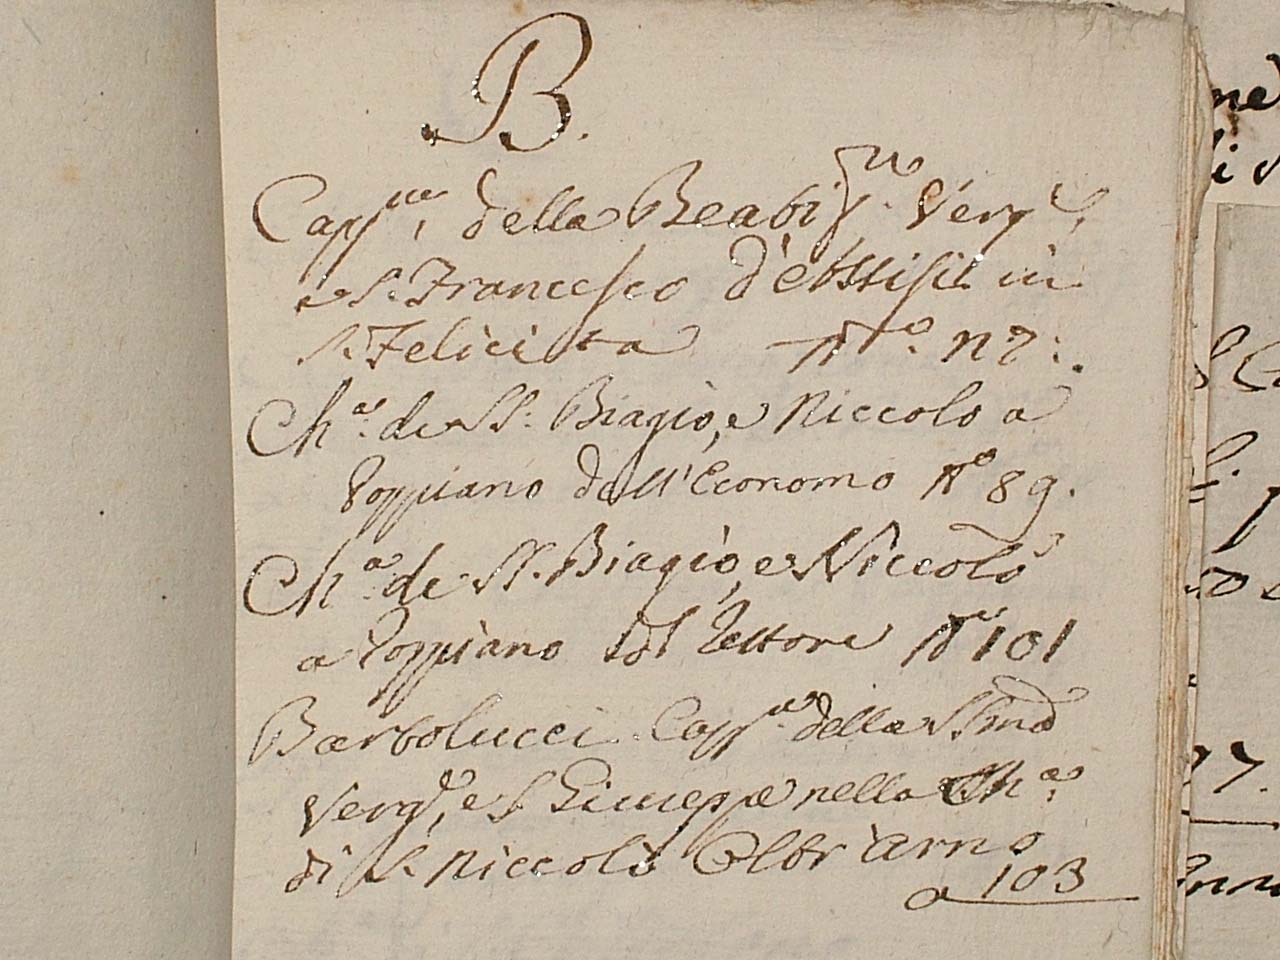 B.
Capp.lla della Beatiss.ma Verg.e
e S. Francesco d'Assisi in
S. Felicita N.o 27.
Ch.a de SS. Biagio, e Niccolo a
Poppiano dall'Economo N.o 89.
Ch.a de SS. Biagio, e Niccolò
a Poppiano dal Rettore N.o 101
Bartolucci Capp.a della SSma
Verg.e, e S. Giuseppe nella Ch.a
di S. Niccolò Oltr'arno
a 103